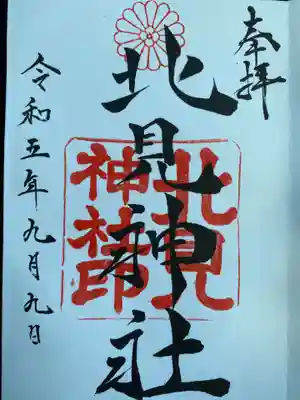 奉拝
北見神社
北見
神社印
令和五年九月九日